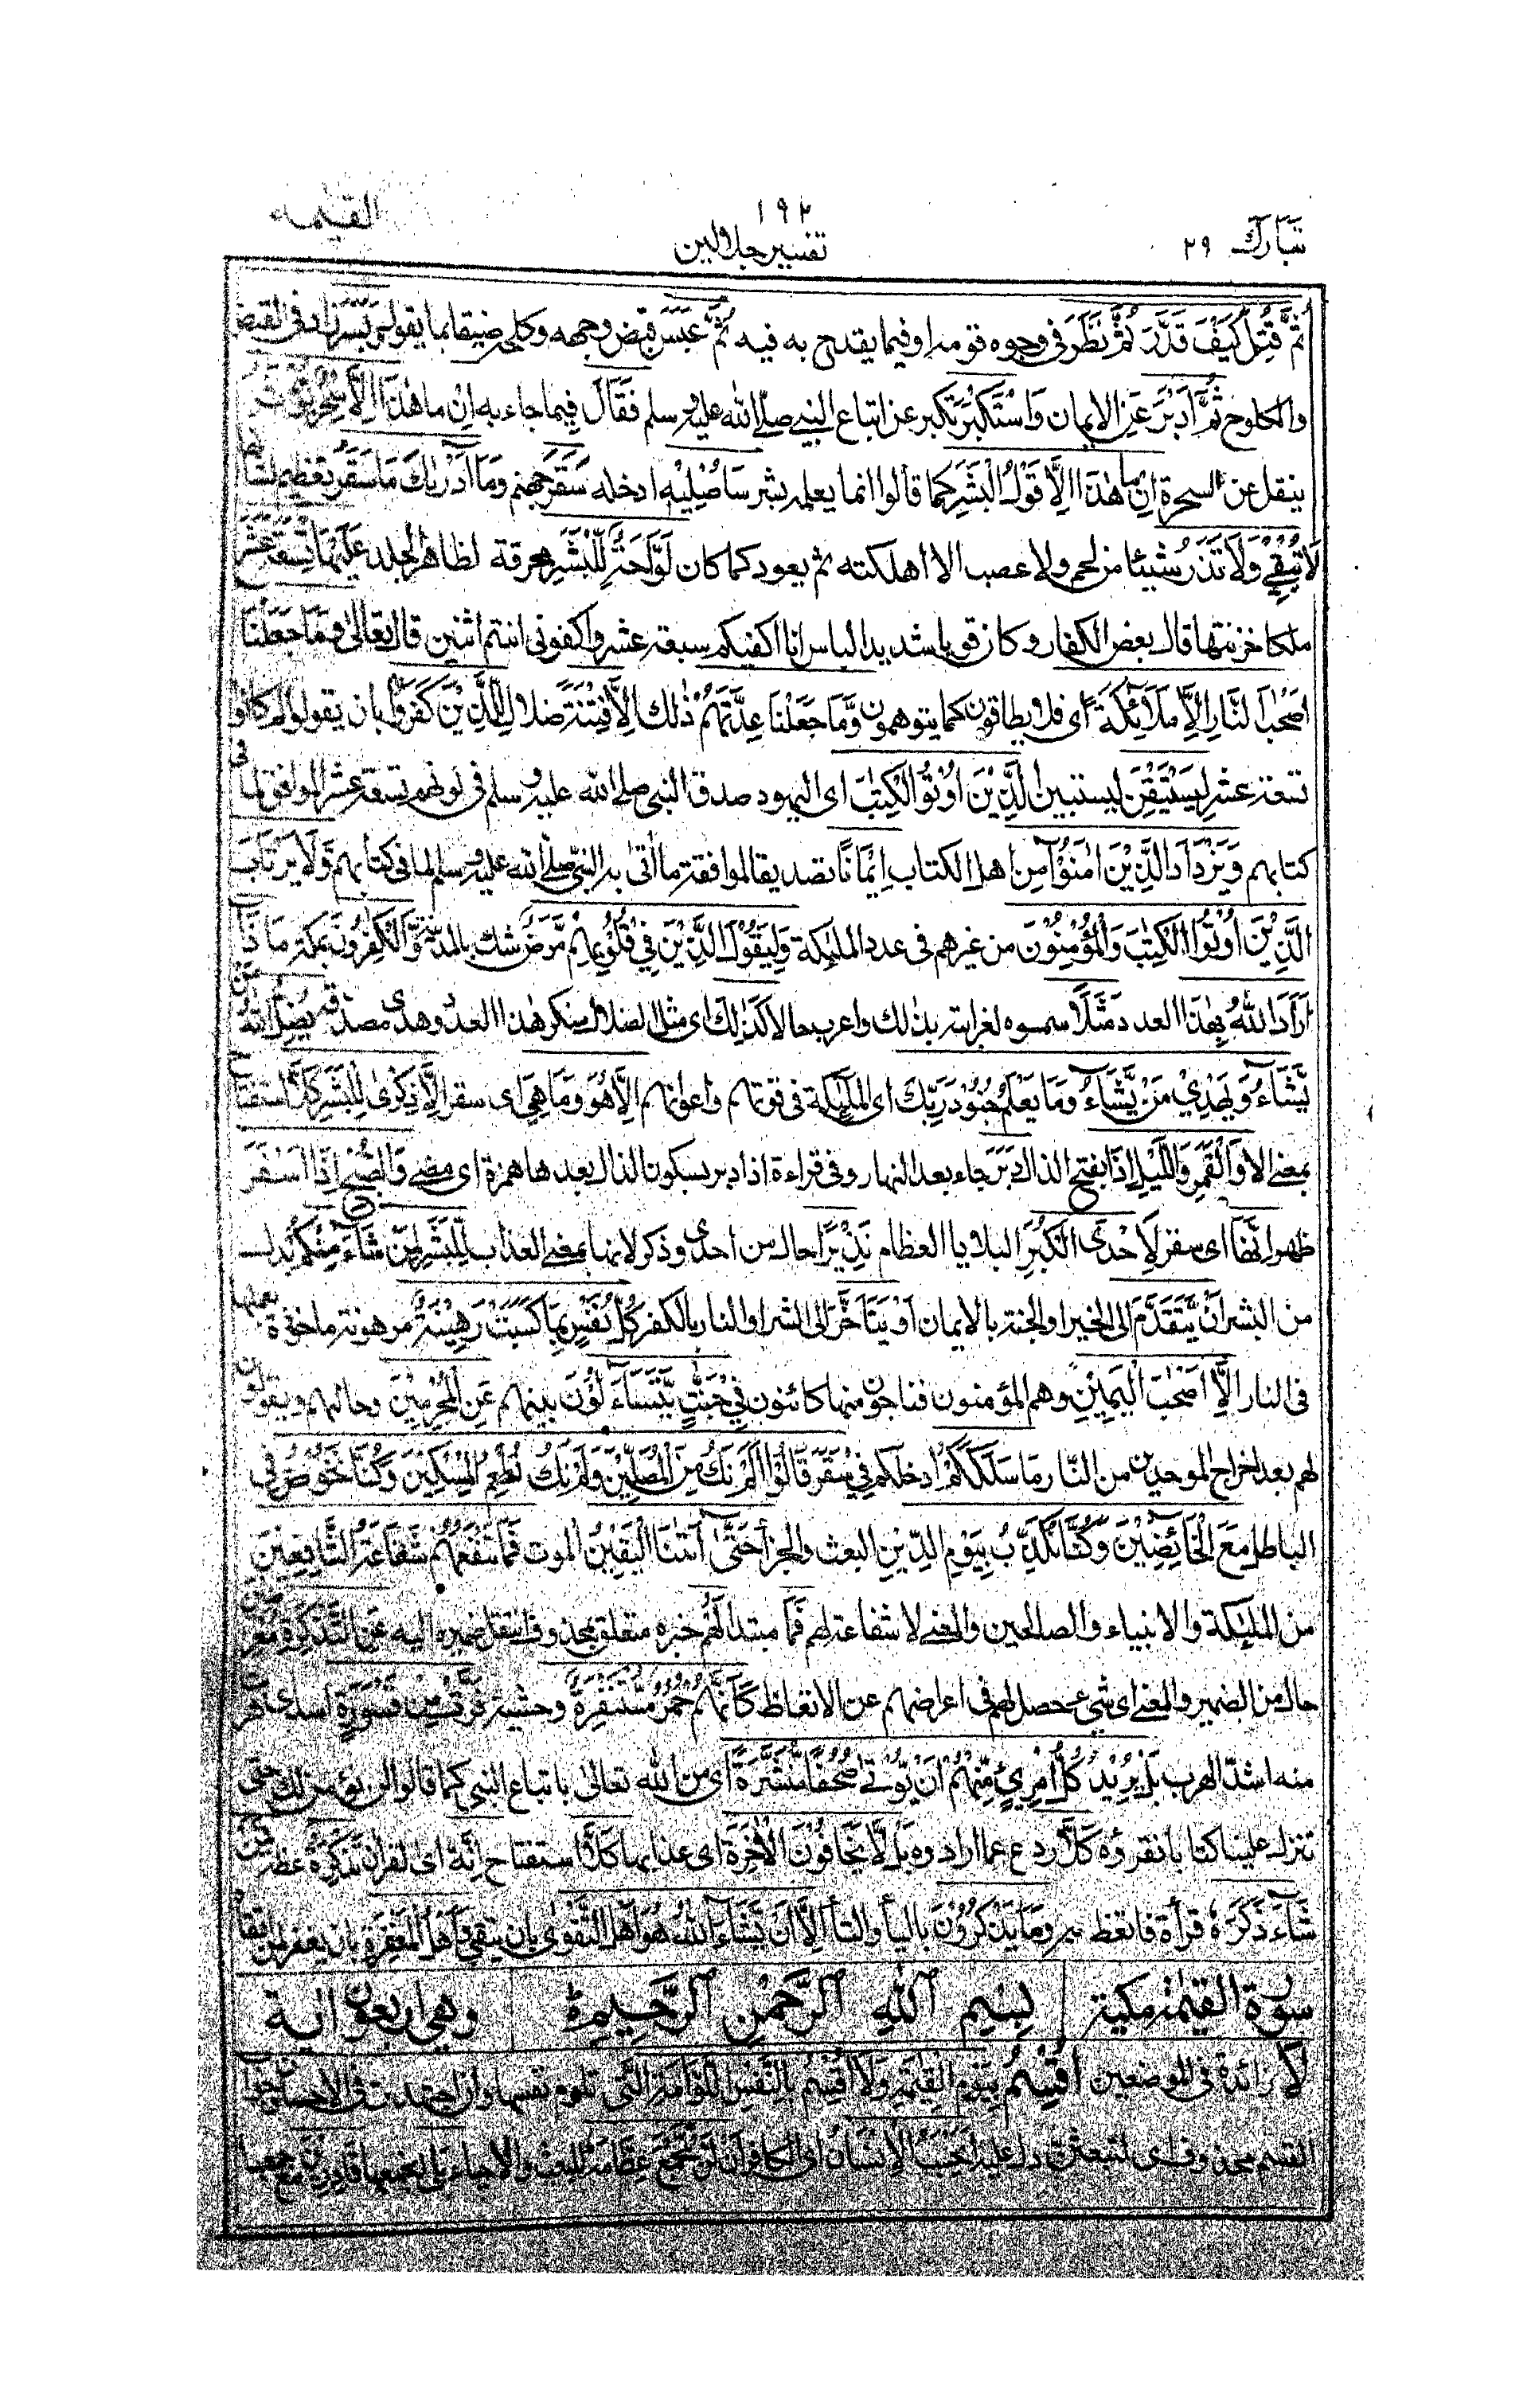 ١٩٢
تبارك ٢٩ تفسير جلالين القيمة
ثُمَّ قُتِلَ كَيْفَ قَدَّرَ ثُمَّ نَظَرَ في وجوه قومه او فيما يقدح به فيه ثُمَّ عَبَسَ قبض وجهه وكلحه ضيقا بما يقول وَبَسَرَ زاد في القبض
والكلوح ثُمَّ اَدْبَرَ عن الايمان وَاسْتَكْبَرَ تكبر عن اتباع النبي صلى الله عليه وسلم فَقَالَ فيما جاء به اِنْ ما هٰذَا اِلَّا سِحْرٌ يُّؤْثَرُ
ينقل عن السحرة اِنْ ما هٰذَا اِلَّا قَوْلُ الْبَشَرِ كما قالوا انما يعلمه بشر سَاُصْلِيْهِ ادخله سَقَرَ جهنم وَمَا اَدْرٰىكَ مَا سَقَرُ تعظيم لشانها
لَا تُبْقِيْ وَلَا تَذَرُ شيئا من لحم ولا عصب الا اهلكته ثم يعود كما كان لَوَّاحَةٌ لِّلْبَشَرِ محرقة لظاهر الجلد عَلَيْهَا تِسْعَةَ عَشَرَ
ملكا خزنتها قال بعض الكفار وكان قويا شديد الباس انا اكفيكم سبعة عشر واكفوني انتم اثنين قال تعالى وَمَا جَعَلْنَا
اَصْحٰبَ النَّارِ اِلَّا مَلَائِكَةً اى فلا يطاقون كما يتوهمون وَّمَا جَعَلْنَا عِدَّتَهُمْ ذلك اِلَّا فِتْنَةً ضلالا لِّلَّذِيْنَ كَفَرُوْا بان يقولوا لم كانوا
تسعة عشر لِيَسْتَيْقِنَ ليستبين الَّذِيْنَ اُوْتُوا الْكِتٰبَ اى اليهود صدق النبي صلى الله عليه وسلم في كونهم تسعة عشر الموافق لما في
كتابهم وَيَزْدَادَ الَّذِيْنَ اٰمَنُوْآ من اهل الكتاب اِيْمَانًا تصديقا لموافقة ما اتى به النبي صلى الله عليه وسلم لما في كتابهم وَّلَا يَرْتَابَ
الَّذِيْنَ اُوْتُوا الْكِتٰبَ وَالْمُؤْمِنُوْنَ من غيرهم في عدد الملئكة وَلِيَقُوْلَ الَّذِيْنَ فِيْ قُلُوْبِهِمْ مَّرَضٌ شك بالمدينة وَّالْكٰفِرُوْنَ بمكة مَا ذَآ
اَرَادَ اللّٰهُ بِهٰذَا العدد مَثَلًا سموه لغرابته بذلك واعرب حالا كَذٰلِكَ اى مثل اضلال منكر هذا العدد وهدى مصدقه يُضِلُّ اللّٰهُ مَنْ
يَّشَآءُ وَيَهْدِيْ مَنْ يَّشَآءُ وَمَا يَعْلَمُ جُنُوْدَ رَبِّكَ اى الملئكة في قوتهم واعوانهم اِلَّا هُوَ وَمَا هِيَ اى سقر اِلَّا ذِكْرٰى لِلْبَشَرِ كَلَّا استفتاح
بمعنى الا وَالْقَمَرِ وَاللَّيْلِ اِذَا بفتح الذال دَبَرَ جاء بعد النهار وفي قراءة اذ ادبر بسكون الذال بعدها همزة اى مضى وَالصُّبْحِ اِذَا اَسْفَرَ
ظهر اِنَّهَا اى سقر لَاِحْدَى الْكُبَرِ البلايا العظام نَذِيْرًا حال من احدى وذكر لانها بمعنى العذاب لِّلْبَشَرِ لِمَنْ شَآءَ مِنْكُمْ بدل
من البشر اَنْ يَّتَقَدَّمَ الى الخير او الجنة بالايمان اَوْ يَتَاَخَّرَ الى الشر او النار بالكفر كُلُّ نَفْسٍ بِمَا كَسَبَتْ رَهِيْنَةٌ مرهونة ماخوذة بعملها
في النار اِلَّا اَصْحٰبَ الْيَمِيْنِ وهم المؤمنون فناجون منها كائنون فِيْ جَنّٰتٍ يَّتَسَآءَلُوْنَ بينهم عَنِ الْمُجْرِمِيْنَ وحالهم ويقولون
لهم بعد اخراج الموحدين من النار مَا سَلَكَكُمْ ادخلكم فِيْ سَقَرَ قَالُوْا لَمْ نَكُ مِنَ الْمُصَلِّيْنَ وَلَمْ نَكُ نُطْعِمُ الْمِسْكِيْنَ وَكُنَّا نَخُوْضُ في
الباطل مَعَ الْخَآئِضِيْنَ وَكُنَّا نُكَذِّبُ بِيَوْمِ الدِّيْنِ البعث والجزأ حَتّٰى اَتٰنَا الْيَقِيْنُ الموت فَمَا تَنْفَعُهُمْ شَفَاعَةُ الشَّافِعِيْنَ
من الملئكة والانبياء والصالحين والمعنى لا شفاعة لهم فَمَا مبتدأ لَهُمْ خبره متعلق بمحذوف انتقل ضميره اليه عَنِ التَّذْكِرَةِ مُعْرِضِيْنَ
حال من الضمير والمعنى اى شيء حصل لهم في اعراضهم عن الاتعاظ كَاَنَّهُمْ حُمُرٌ مُّسْتَنْفِرَةٌ وحشية فَرَّتْ مِنْ قَسْوَرَةٍ اسد اى فرت
منه اشد الهرب بَلْ يُرِيْدُ كُلُّ امْرِئٍ مِّنْهُمْ اَنْ يُّؤْتٰى صُحُفًا مُّنَشَّرَةً اى من الله تعالى باتباع النبي كما قالوا لن نؤمن لك حتى
تنزل علينا كتابا نقرؤه كَلَّا ردع عما ارادوه بَلْ لَّا يَخَافُوْنَ الْاٰخِرَةَ اى عذابها كَلَّا استفتاح اِنَّهٗ اى القران تَذْكِرَةٌ عظة فَمَنْ
شَآءَ ذَكَرَهٗ قرأه فاتعظ به وَمَا يَذْكُرُوْنَ بالياء والتاء اِلَّا اَنْ يَّشَآءَ اللّٰهُ هُوَ اَهْلُ التَّقْوٰى بان يتقى وَاَهْلُ الْمَغْفِرَةِ بان يغفر لمن اتقاه
سورة القيمة مكية بِسْمِ اللّٰهِ الرَّحْمٰنِ الرَّحِيْمِ وهي اربعون اية
لَآ زائدة في الموضعين اُقْسِمُ بِيَوْمِ الْقِيٰمَةِ وَلَآ اُقْسِمُ بِالنَّفْسِ اللَّوَّامَةِ التي تلوم نفسها وان اجتهدت في الاحسان وجواب
القسم محذوف اى لتبعثن دل عليه اَيَحْسَبُ الْاِنْسَانُ اى الكافر اَنْ لَّنْ نَّجْمَعَ عِظَامَهٗ للبعث والاحياء بَلٰى نجمعها قَادِرِيْنَ مع جمعها